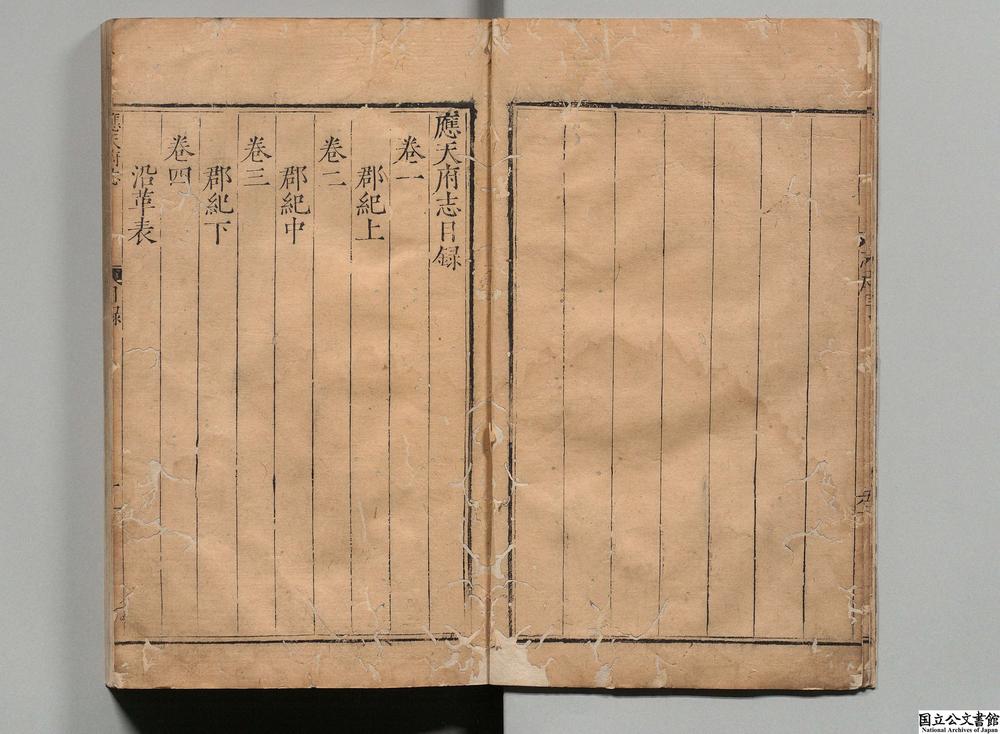 應天府志目録
卷一
郡紀上
卷二
郡紀中
卷三
郡紀下
卷四
沿革表
應天府志
目録
一
国立公文書館
National Archives of Japan